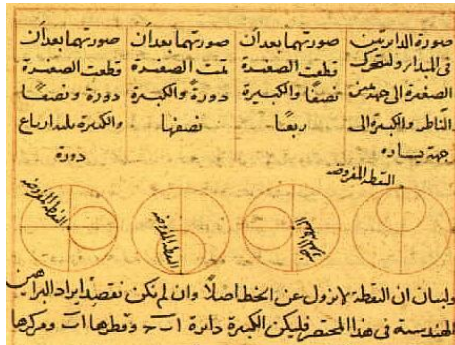 صورة الدايرتين
فى المبدأ ولتتحرك
الصغيرة الى جهة يمين
الناظر والكبيرة الى
جهة يساره
النقطة المفروضه
صورتهما بعد أن
قطعت الصغيرة
نصفًا والكبيرة
ربعًا
صورتهما بعد أن
تمت الصغيرة
دورة والكبيرة
نصفها
النقطة المفروضه
صورتهما بعد أن
قطعت الصغيرة
دورة ونصفًا
والكبيرة ثلثة ارباع
دورة
النقطة المفروضه
ولبيان ان النقطة لا تزول عن الخط اصلًا وان لم نكن نقصد ايراد البراهين
الهندسية فى هذا المختصر فليكن الكبيرة دايرة ا ب ح وقطرها ا ب ومركزها